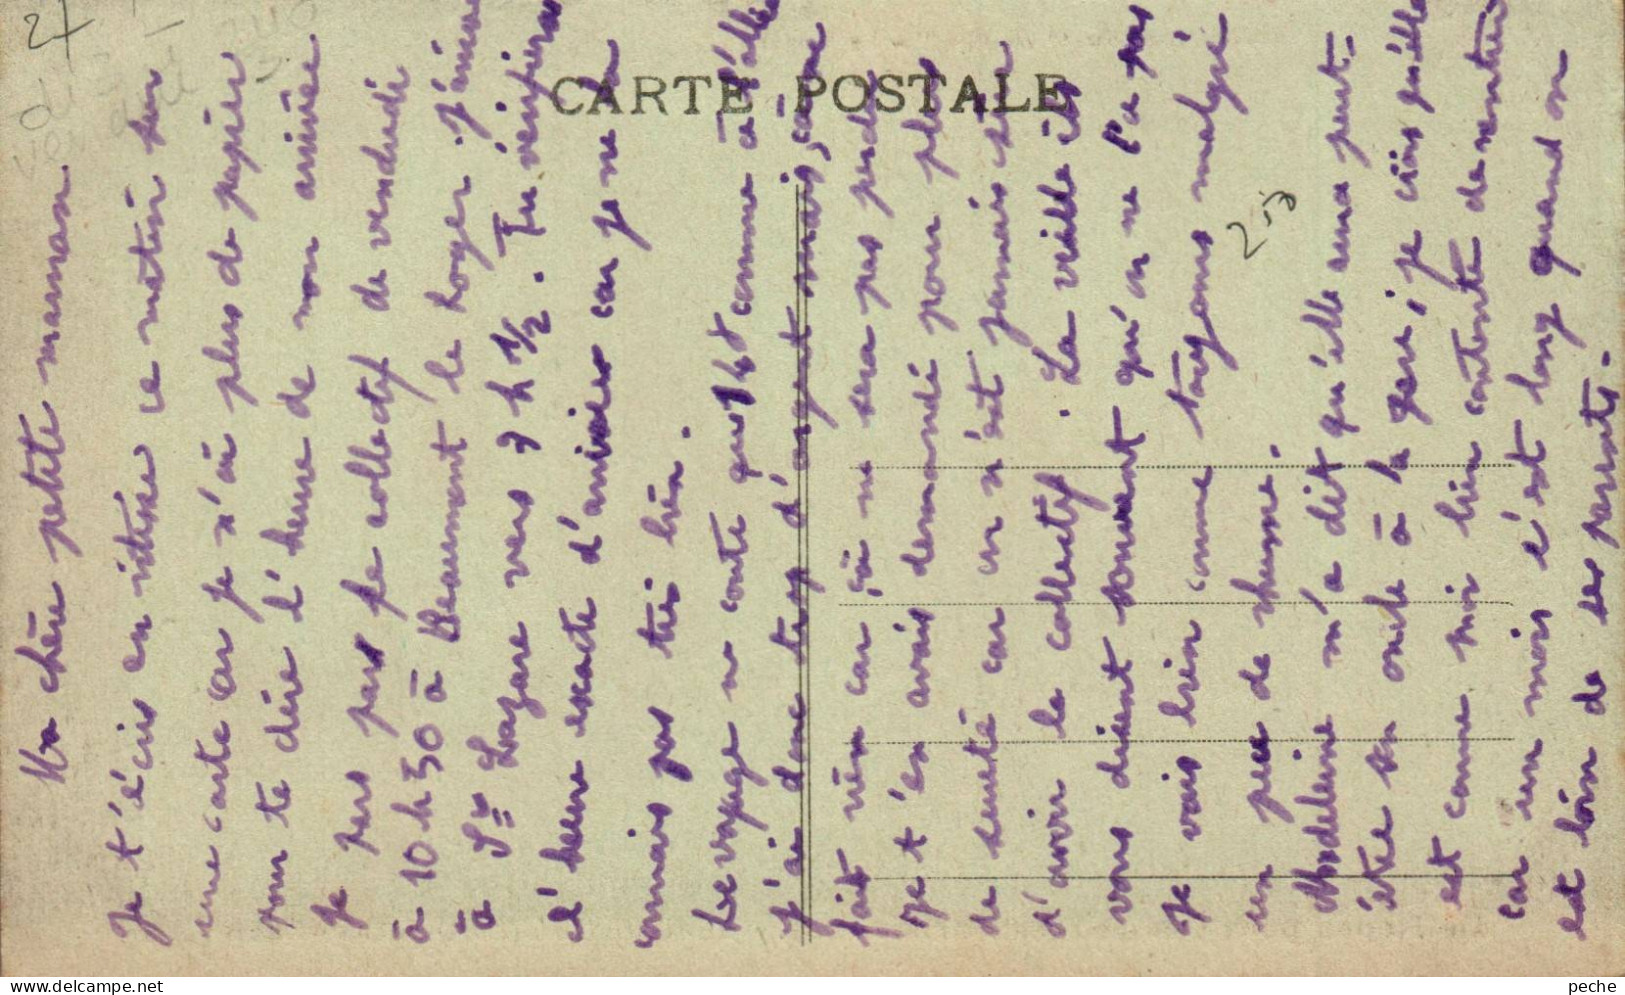 27
CARTE POSTALE
Ma chère petite maman
Je t'écris en vitesse ce matin sur
une carte car je n'ai plus de papier
pour te dire l'heure de mon arrivée
Je pars par le collectif de vendredi
à 10 h 50 à Beaumont le Roger j'arrive
à St Lazare vers 2 h 1/2. Tu vérifieras
l'heure exacte d'arrivée car je ne la
connais pas très bien.
Le voyage ne coûte que 14 comme à l'allée
j'ai donc trop d'argent mais, ça ne
fait rien car ça ne sera pas perdu
Je t'en avais demandé pour plus
de sureté car on n'est jamais sûr
d'avoir le collectif. La veille ils
vous disent souvent qu'on ne l'a pas
Je vais bien comme toujours malgré
un peu de rhume.
Madeleine m'a dit qu'elle sera peut-
être sa à la gare; je crois qu'elle
est comme moi bien contente de rentrer
car un mois c'est long quand on
est loin de ses parents.
peche